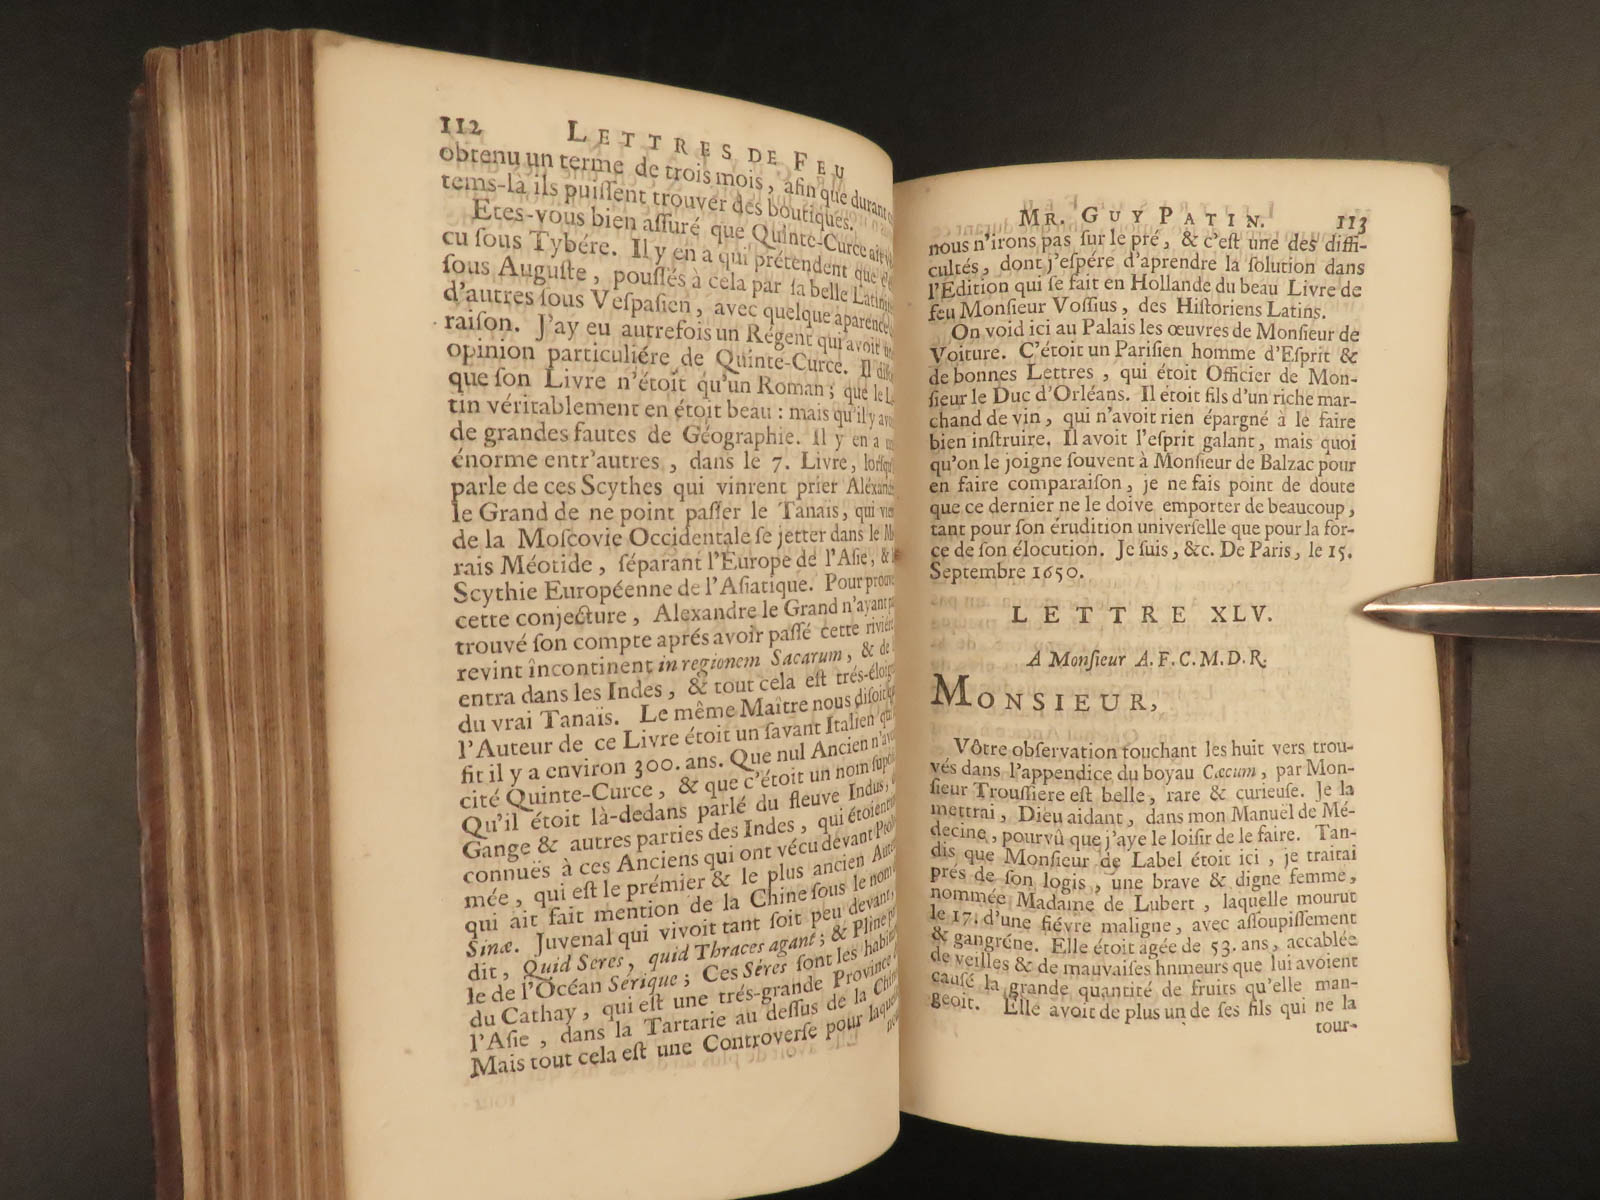 112 LETTRES DE FEU
obtenu un terme de trois mois, afin que durant
tems-là ils puiſſent trouver des boutiques.
Etes-vous bien aſſuré que Quinte-Curce ait
cu ſous Tybére. Il y en a qui prétendent que
ſous Auguſte, pouſſés à cela par ſa belle
d'autres ſous Veſpaſien, avec quelque aparence
raiſon. J'ay eu autrefois un Régent qui avoit
opinion particuliére de Quinte-Curce. Il
que ſon Livre n'étoit qu'un Roman; que le
tin véritablement en étoit beau: mais qu'il y
de grandes fautes de Géographie. Il y en a
énorme entr'autres, dans le 7. Livre,
parle de ces Scythes qui vinrent prier
le Grand de ne point paſſer le Tanaïs, qui
de la Moſcovie Occidentale ſe jetter dans le
rais Méotide, ſéparant l'Europe de l'Aſie, &
Scythie Européenne de l'Aſiatique. Pour
cette conjecture, Alexandre le Grand n'ayant
trouvé ſon compte aprés avoir paſſé cette
revint incontinent in regionem Sacarum, & de
entra dans les Indes, & tout cela eſt
du vrai Tanaïs. Le même Maître nous diſoit
l'Auteur de ce Livre étoit un ſavant Italien
fit il y a environ 300. ans. Que nul Ancien
cité Quinte-Curce, & que c'étoit un nom
Qu'il étoit là-dedans parlé du fleuve Indus,
Gange & autres parties des Indes, qui
connuës à ces Anciens qui ont vécu devant
mée, qui eſt le prémier & le plus ancien
qui ait fait mention de la Chine ſous le nom
Sinæ. Juvenal qui vivoit tant ſoit peu devant,
dit, Quid Seres, quid Thraces agant; & Pline
le de l'Océan Sérique; Ces Séres ſont les
du Cathay, qui eſt une trés-grande Province
l'Aſie, dans la Tartarie au deſſus de la
Mais tout cela eſt une Controverſe pour
MR. GUY PATIN. 113
nous n'irons pas ſur le pré, & c'eſt une des diffi-
cultés, dont j'eſpére d'aprendre la ſolution dans
l'Edition qui ſe fait en Hollande du beau Livre de
feu Monſieur Voſſius, des Hiſtoriens Latins.
On void ici au Palais les œuvres de Monſieur de
Voiture. C'étoit un Pariſien homme d'Eſprit &
de bonnes Lettres, qui étoit Officier de Mon-
ſieur le Duc d'Orléans. Il étoit fils d'un riche mar-
chand de vin, qui n'avoit rien épargné à le faire
bien inſtruire. Il avoit l'eſprit galant, mais quoi
qu'on le joigne ſouvent à Monſieur de Balzac pour
en faire comparaiſon, je ne fais point de doute
que ce dernier ne le doive emporter de beaucoup,
tant pour ſon érudition univerſelle que pour la for-
ce de ſon élocution. Je ſuis, &c. De Paris, le 15.
Septembre 1650.
LETTRE XLV.
A Monſieur A. F. C. M. D. R.
MONSIEUR,
Vôtre obſervation touchant les huit vers trou-
vés dans l'appendice du boyau Cæcum, par Mon-
ſieur Trouſſiere eſt belle, rare & curieuſe. Je la
mettrai, Dieu aidant, dans mon Manuël de Mé-
decine, pourvû que j'aye le loiſir de le faire. Tan-
dis que Monſieur de Label étoit ici, je traitai
prés de ſon logis, une brave & digne femme,
nommée Madame de Lubert, laquelle mourut
le 17. d'une fiévre maligne, avec aſſoupiſſement
& gangréne. Elle étoit agée de 53. ans, accablée
de veilles & de mauvaiſes humeurs que lui avoient
cauſé la grande quantité de fruits qu'elle man-
geoit. Elle avoit de plus un de ſes fils qui ne la
tour-